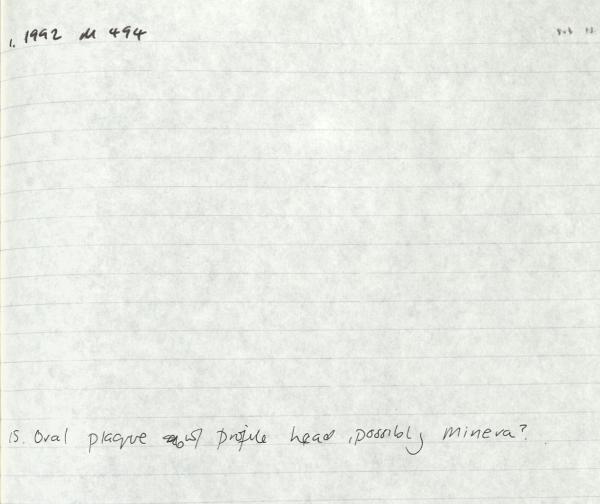 1. 1992 M 494
15. Oval plaque w/ profile head, possibly Mineva?